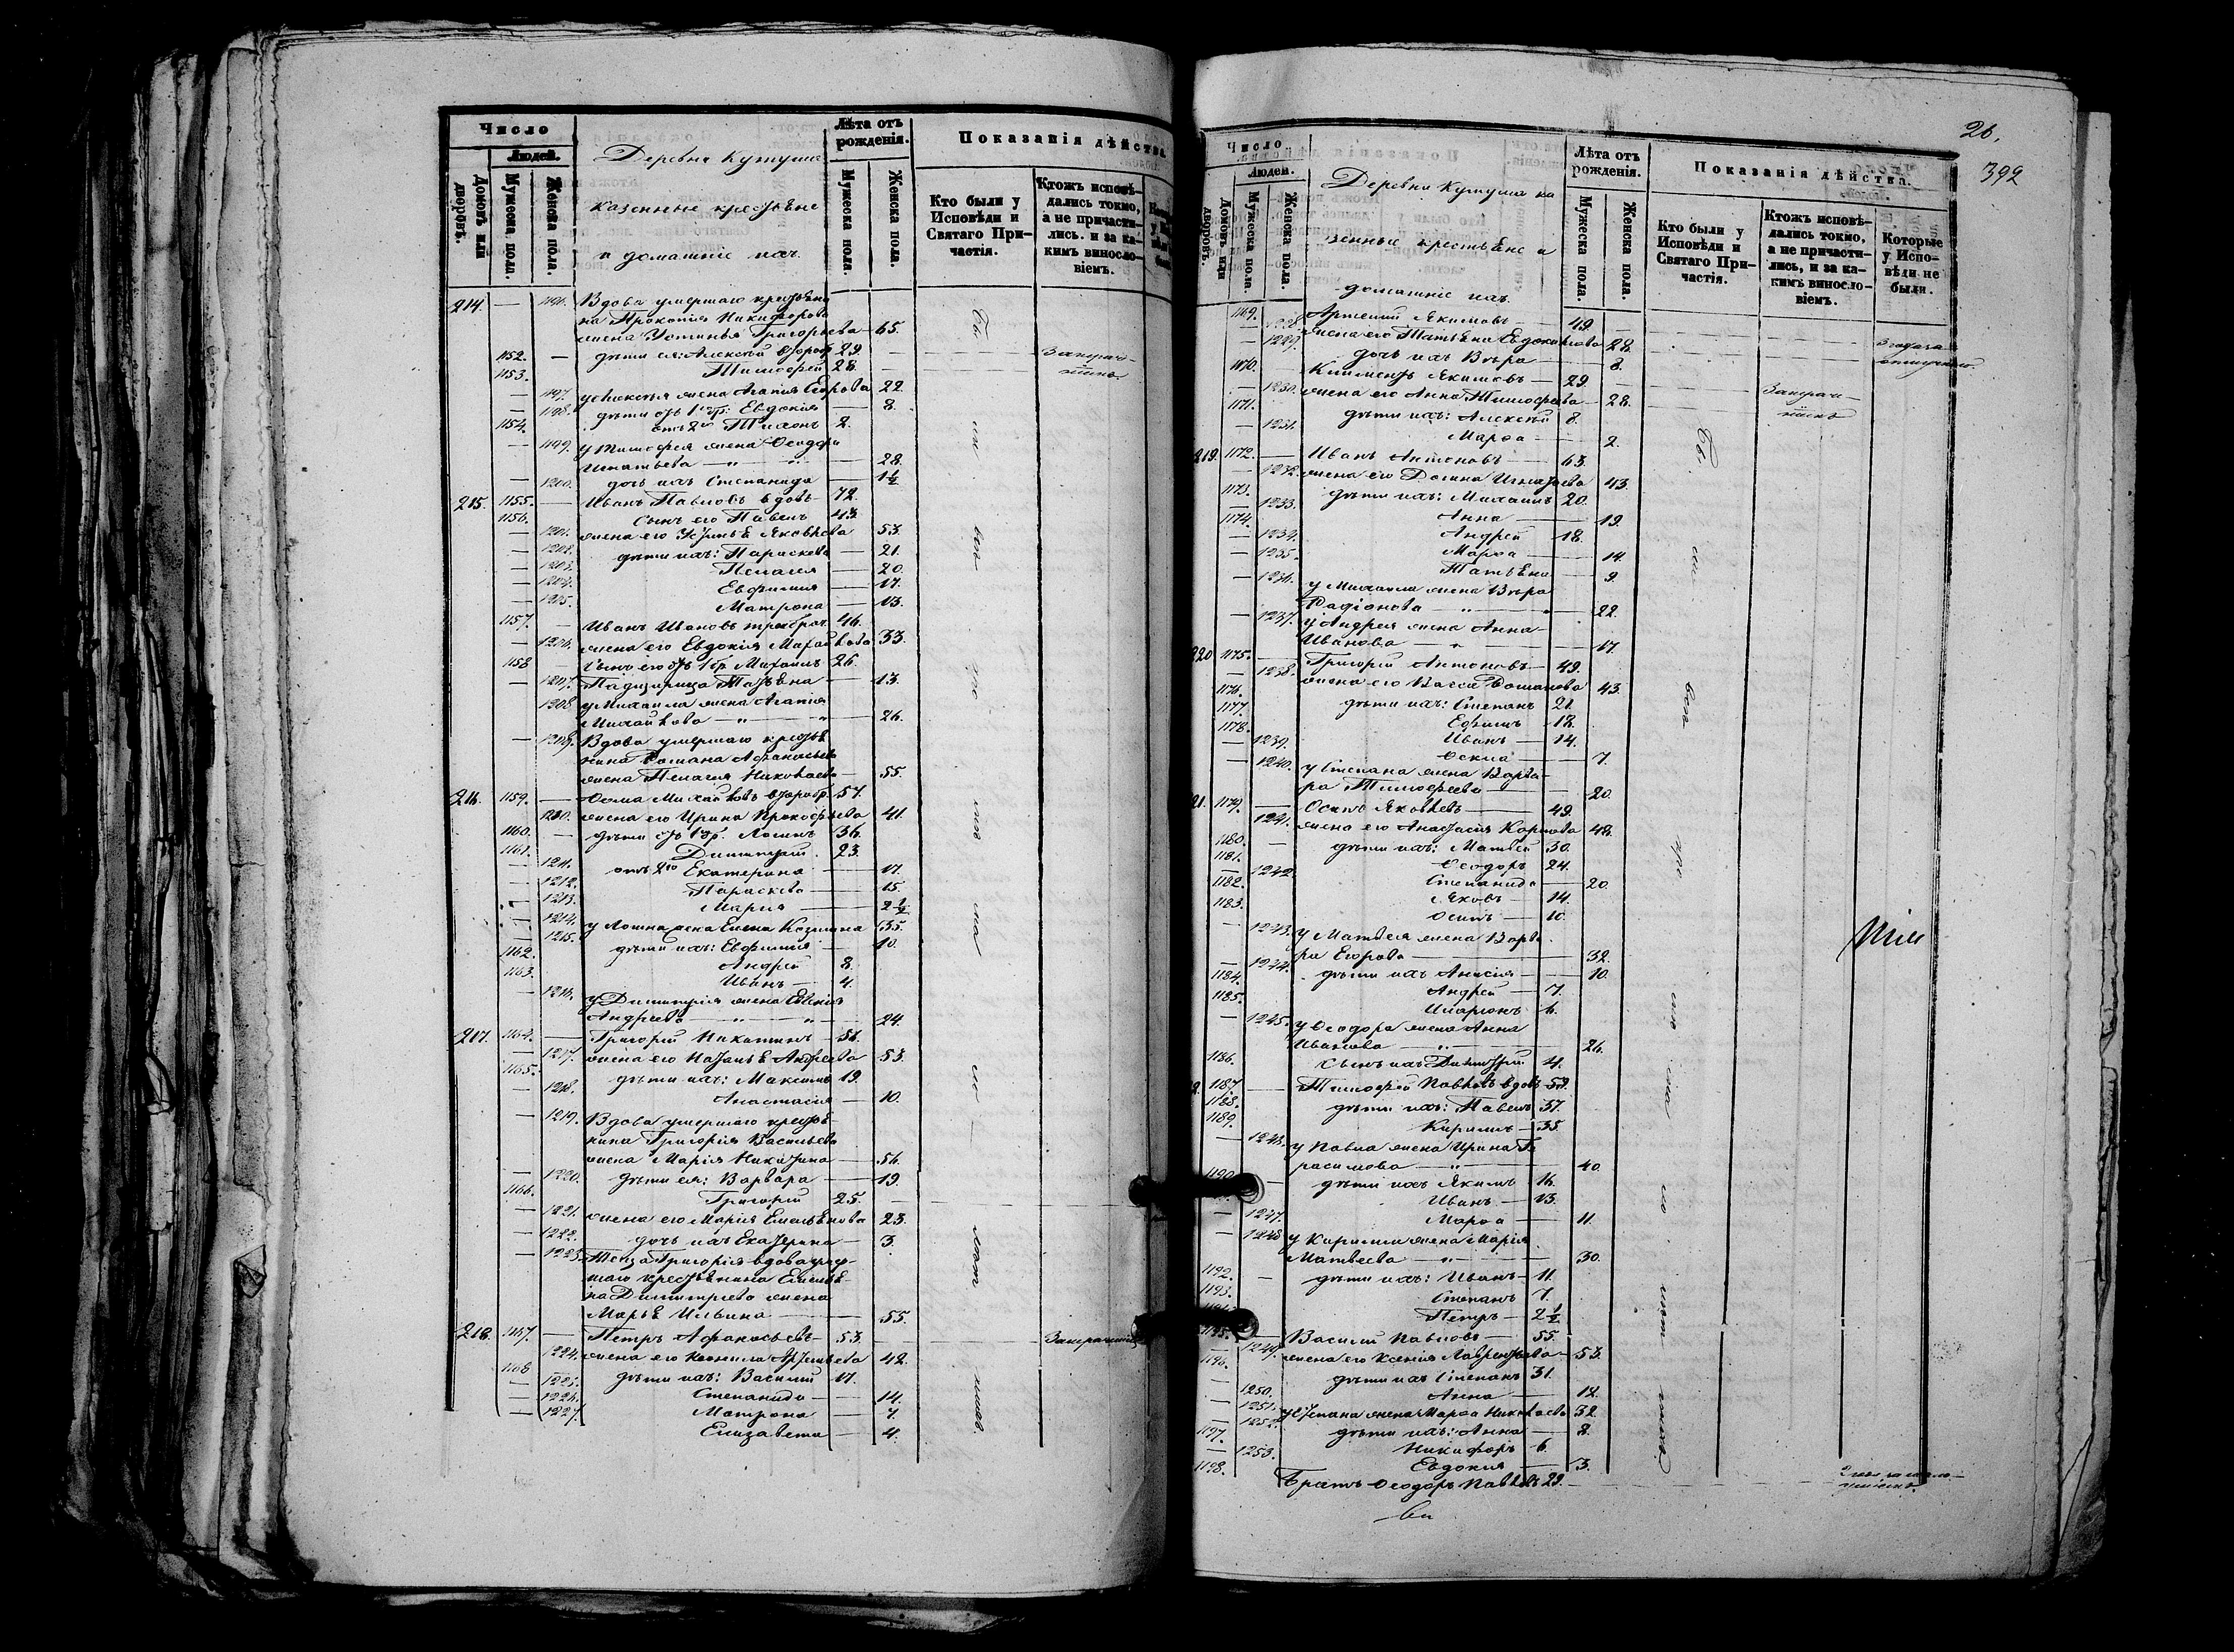 Число
Людей.
Домовъ или дворовъ.
Мужеска пола.
Женска пола.
Деревня Кутуша
казенные крестьяне
и домашніе ихъ.
Лѣта отъ рожденія.
Мужеска пола.
Женска пола.
Показанія дѣйства.
Кто были у Исповѣди и Святаго Причастія.
Ктожъ исповѣдались токмо, а не причастились, и за какимъ винословіемъ.
214. — 1196. Вдова умершаго крестьяни
на Прокопія Никифорова
жена Устинья Григорьева — 65.
1152. — дѣти ея: Алексѣй 29.
1153. Тимофей 26.
— 1197. у Алексѣя жена Агапія Егорова 22.
— 1198. дѣти отъ 1го бр: Евдокія — 8.
1154. отъ 2го Тихонъ 2.
— 1199. у Тимофея жена Ѳеодора
Игнатьева — 28.
— 1200. дочь ихъ Степанида — 1½
215. 1155. — Иванъ Павловъ вдовъ 72.
1156. Сынъ его Павелъ 43.
— 1201. жена его Яковлева 53.
— 1202. дѣти ихъ: Параскева — 21.
— 1203. Пелагея — 20.
— 1204. Евфимия — 17.
— 1205. Матрона — 13.
1157. — Иванъ Ивановъ 46.
— 1206. жена его Евдокія Михайлова 33.
1158 — Сынъ его отъ 1 бр Михаилъ 26.
— 1207. Падчерица Татьяна — 13.
1208. у Михаила жена Агапія
Михайлова — 26.
— 1209. Вдова умершаго крестья
нина Романа Афанасьева
жена Пелагея Николаева — 55.
216. 1159. — Ѳома Михайловъ 57.
1210. жена его Ирина Прокофьева 41.
1160. — дѣти отъ 1 бр. Логинъ 36.
1161. Димитрій 23.
— 1211. отъ 2го Екатерина — 17.
— 1212. Параскева — 15.
— 1213. Мария — 2½
— 1214. у Логина жена Елена Козмина 35.
— 1215. дѣти ихъ: Евфимія — 10.
1162. Андрей 8.
1163. Иванъ 4.
— 1216. у Димитрія жена Евгенія
Андреева — 24.
217. 1164. — Григорій Никитинъ 56.
— 1217. жена его Наталья Андреева 53.
1165. дѣти ихъ: Максимъ 19.
— 1218. Анастасія — 10.
— 1219. Вдова умершаго крестья
нина Григорія Васильева
жена Марія Никитина — 56.
— 1220. дѣти ея: Варвара — 19.
1166. Григорій 25.
— 1221. жена его Марія Емельянова 23.
— 1222. дочь ихъ Екатерина — 3.
— 1223. Теща Григорія вдова умер-
шаго крестьянина Емелья
на Димитріева жена
Марья Ильина — 55.
218. 1167. — Петръ Афанасьевъ — 53.
1224. жена его Артемьева 42.
1168 дѣти ихъ: Василій 17.
— 1225. Степанида — 14.
— 1226. Матрона — 7.
— 1227. Елизавета — 4.
26.
392
Число
Людей.
Домовъ или дворовъ.
Мужеска пола.
Женска пола.
Деревни Кутуша ка
зенные крестьяне и
домашніе ихъ
Лѣта отъ рожденія.
Мужеска пола.
Женска пола.
Показанія дѣйства.
Кто были у Исповѣди и Святаго Причастія.
Ктожъ исповѣдались токмо, а не причастились, и за какимъ винословіемъ.
Которые у Исповѣди не были.
1169. Артемій Якимовъ 49.
— 1228. жена его Татьяна Евдокимова 28.
— 1229. дочь ихъ Вѣра — 8.
1170. Климентъ Якимовъ — 29.
— 1230. жена его Анна Тимофеева — 28.
1171. дѣти ихъ: Алексѣй 8.
— 1231. Марѳа — 2.
219. 1172. — Иванъ Антоновъ — 63.
— 1232. жена его Домна Игнатьева 43.
1173. дѣти ихъ: Михаилъ 20.
— 1233. Анна — 19.
1174. Андрей 18.
— 1234. Марѳа — 14.
— 1235. Татьяна — 9
— 1236. у Михаила жена Вѣра
Радіонова — 22.
— 1237. у Андрея жена Анна
Иванова — 17.
220 1175. — Григорій Антоновъ — 49.
— 1238. жена его Васса Романова 43.
1176. дѣти ихъ: Степанъ 21.
1177. Ефимъ 18.
1178. Иванъ — 14.
— 1239. Ѳекла — 7.
— 1240. у Степана жена Варва-
ра Тимофеева — 20.
21. 1179. — Осипъ Яковлевъ — 49.
— 1241. жена его Анастасія Карпова 48.
1180. — дѣти ихъ: Матвей 30.
1181. Ѳеодоръ 24.
— 1242. Степанида — 20.
1182. Яковъ — 14.
1183. Осипъ — 10.
— 1243. у Матвея жена Варва
ра Егорова — 32.
— 1244. дѣти ихъ Анисія — 10.
1184. Андрей — 7.
1185. Иларіонъ 6.
— 1245. у Ѳеодора жена Анна
Иванова — 26.
1186. Сынъ ихъ Димитрій 4.
1187. — Тимофей Павловъ вдовъ 59.
1188. дѣти ихъ: Павелъ 37.
1189. Кирилъ — 35.
— 1246. у Павла жена Ирина Ге
расимова — 40.
1190. — дѣти ихъ Якимъ 16.
Иванъ — 13.
— 1247. Марѳа — 11.
— 1248 у Кирилла жена Марія
Матвеева — 30.
1192. — дѣти ихъ: Иванъ 11.
1193. Степанъ 7.
Петръ — 2½
1195. — Василій Павловъ — 55.
— 1249. жена его Ксенія Лаврентьева 53.
1196. дѣти ихъ Степанъ 31.
— 1250. Анна — 12.
— 1251. у Степана жена Марѳа Николаева 32.
— 1252. дѣти ихъ: Анна — 8.
1197. Никифоръ 6.
— 1253. Евдокия — 3.
1198. Братъ Ѳеодоръ Павловъ 29.